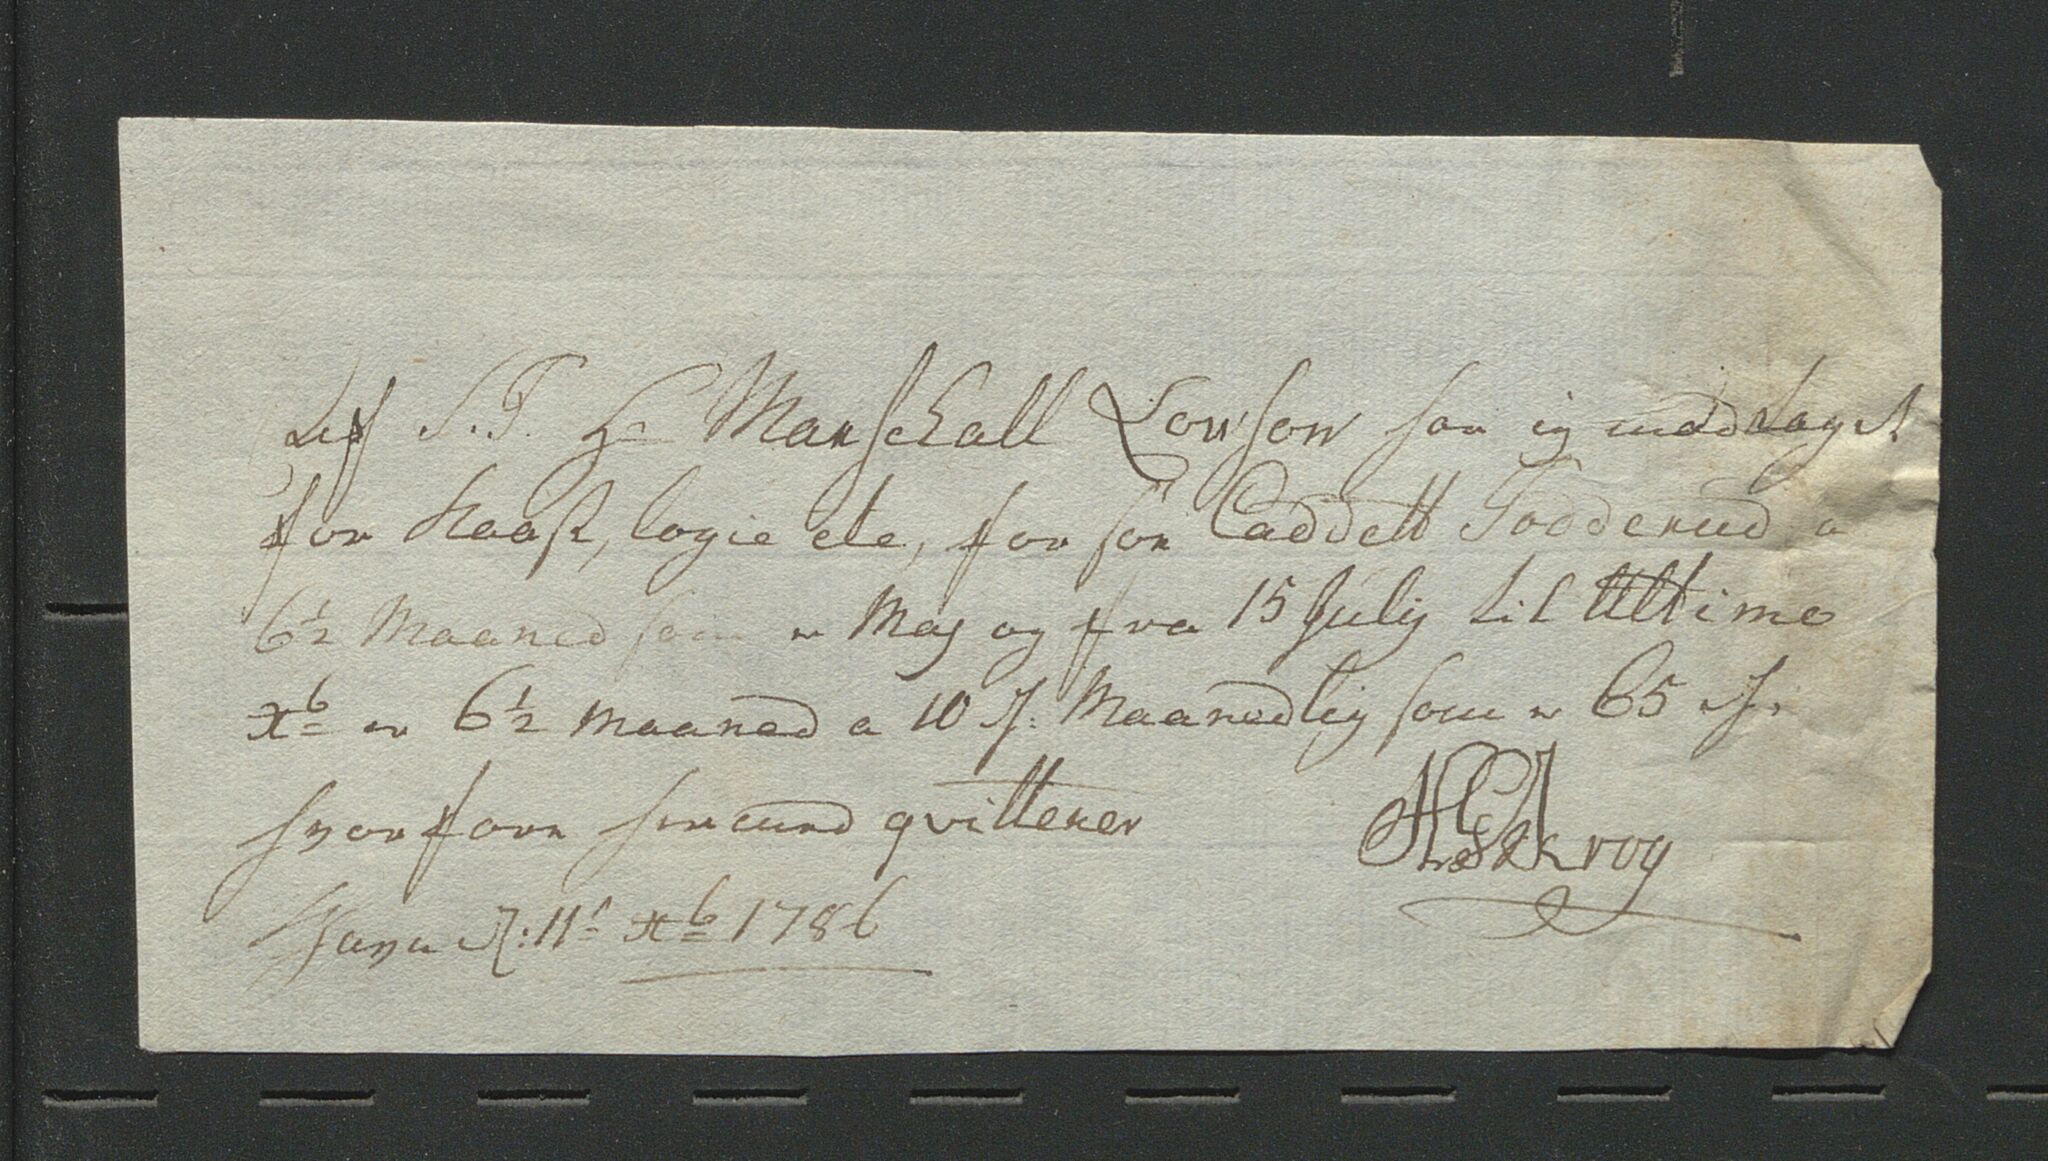 Af S. T. Hr Marschall Lowson har ieg modtaget
for Kaast, logie etc, for hr Caddett Todderud a
6½ Maaned som er Maj og fra 15 Julij til Ultimo
xb er 6½ maaned a 10 rd: Maanedlig som er 65 rd.
hvorfore herved qvitterer
11t xb 1786